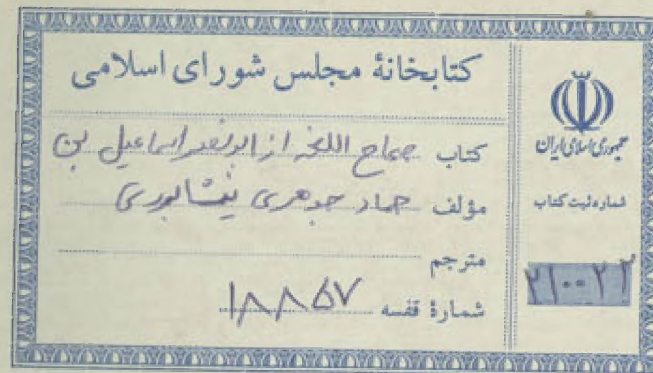 کتابخانهٔ مجلس شورای اسلامی
کتاب صحاح اللغه از ابونصر اسماعیل بن
مؤلف حماد جوهری نیشابوری
مترجم
شمارهٔ قفسه ۱۸۸۵۷
جمهوری اسلامی ایران
شماره ثبت کتاب
۲۱۰۰۲۲